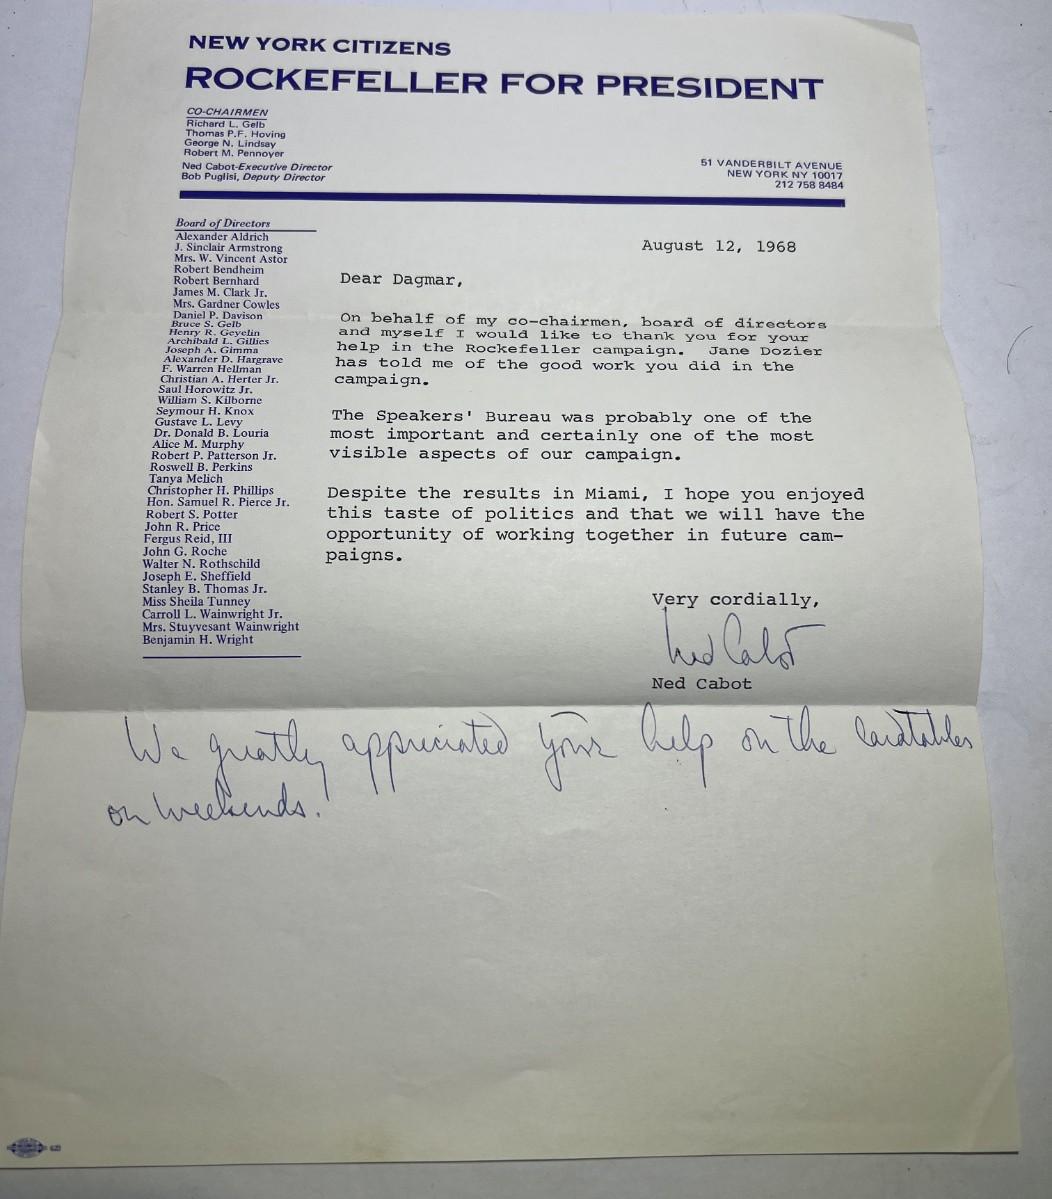 NEW YORK CITIZENS
ROCKEFELLER FOR PRESIDENT
CO-CHAIRMEN
Richard L. Gelb
Thomas P.F. Hoving
George N. Lindsay
Robert M. Pennoyer
Ned Cabot-Executive Director
Bob Puglisi, Deputy Director
51 VANDERBILT AVENUE
NEW YORK NY 10017
212 758 8484
Board of Directors
Alexander Aldrich
J. Sinclair Armstrong
Mrs. W. Vincent Astor
Robert Bendheim
Robert Bernhard
James M. Clark Jr.
Mrs. Gardner Cowles
Daniel P. Davison
Bruce S. Gelb
Henry R. Geyelin
Archibald L. Gillies
Joseph A. Gimma
Alexander D. Hargrave
F. Warren Hellman
Christian A. Herter Jr.
Saul Horowitz Jr.
William S. Kilborne
Seymour H. Knox
Gustave L. Levy
Dr. Donald B. Louria
Alice M. Murphy
Robert P. Patterson Jr.
Roswell B. Perkins
Tanya Melich
Christopher H. Phillips
Hon. Samuel R. Pierce Jr.
Robert S. Potter
John R. Price
Fergus Reid, III
John G. Roche
Walter N. Rothschild
Joseph E. Sheffield
Stanley B. Thomas Jr.
Miss Sheila Tunney
Carroll L. Wainwright Jr.
Mrs. Stuyvesant Wainwright
Benjamin H. Wright
August 12, 1968
Dear Dagmar,
On behalf of my co-chairmen, board of directors
and myself I would like to thank you for your
help in the Rockefeller campaign. Jane Dozier
has told me of the good work you did in the
campaign.
The Speakers' Bureau was probably one of the
most important and certainly one of the most
visible aspects of our campaign.
Despite the results in Miami, I hope you enjoyed
this taste of politics and that we will have the
opportunity of working together in future cam-
paigns.
Very cordially,
Ned Cabot
Ned Cabot
We greatly appreciated your help on the cardtables
on weekends.